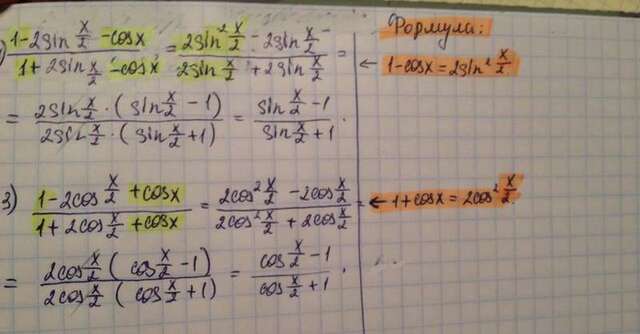 ) (1-2sin x/2 -cosx)/(1+2sin x/2 -cosx) = (2sin² x/2 - 2sin x/2 -)/(2sin x/2 + 2sin x/2) =
Формула:
← 1-cosx=2sin² x/2
= (2sin x/2 · (sin x/2 - 1))/(2sin x/2 · (sin x/2 +1)) = (sin x/2 -1)/(sin x/2 +1) .
3) (1-2cos x/2 +cosx)/(1+2cos x/2 +cosx) = (2cos² x/2 -2cos x/2)/(2cos² x/2 + 2cos x/2) =
← 1+cosx = 2cos² x/2
= (2cos x/2 (cos x/2 -1))/(2cos x/2 (cos x/2 +1)) = (cos x/2 -1)/(cos x/2 +1) .